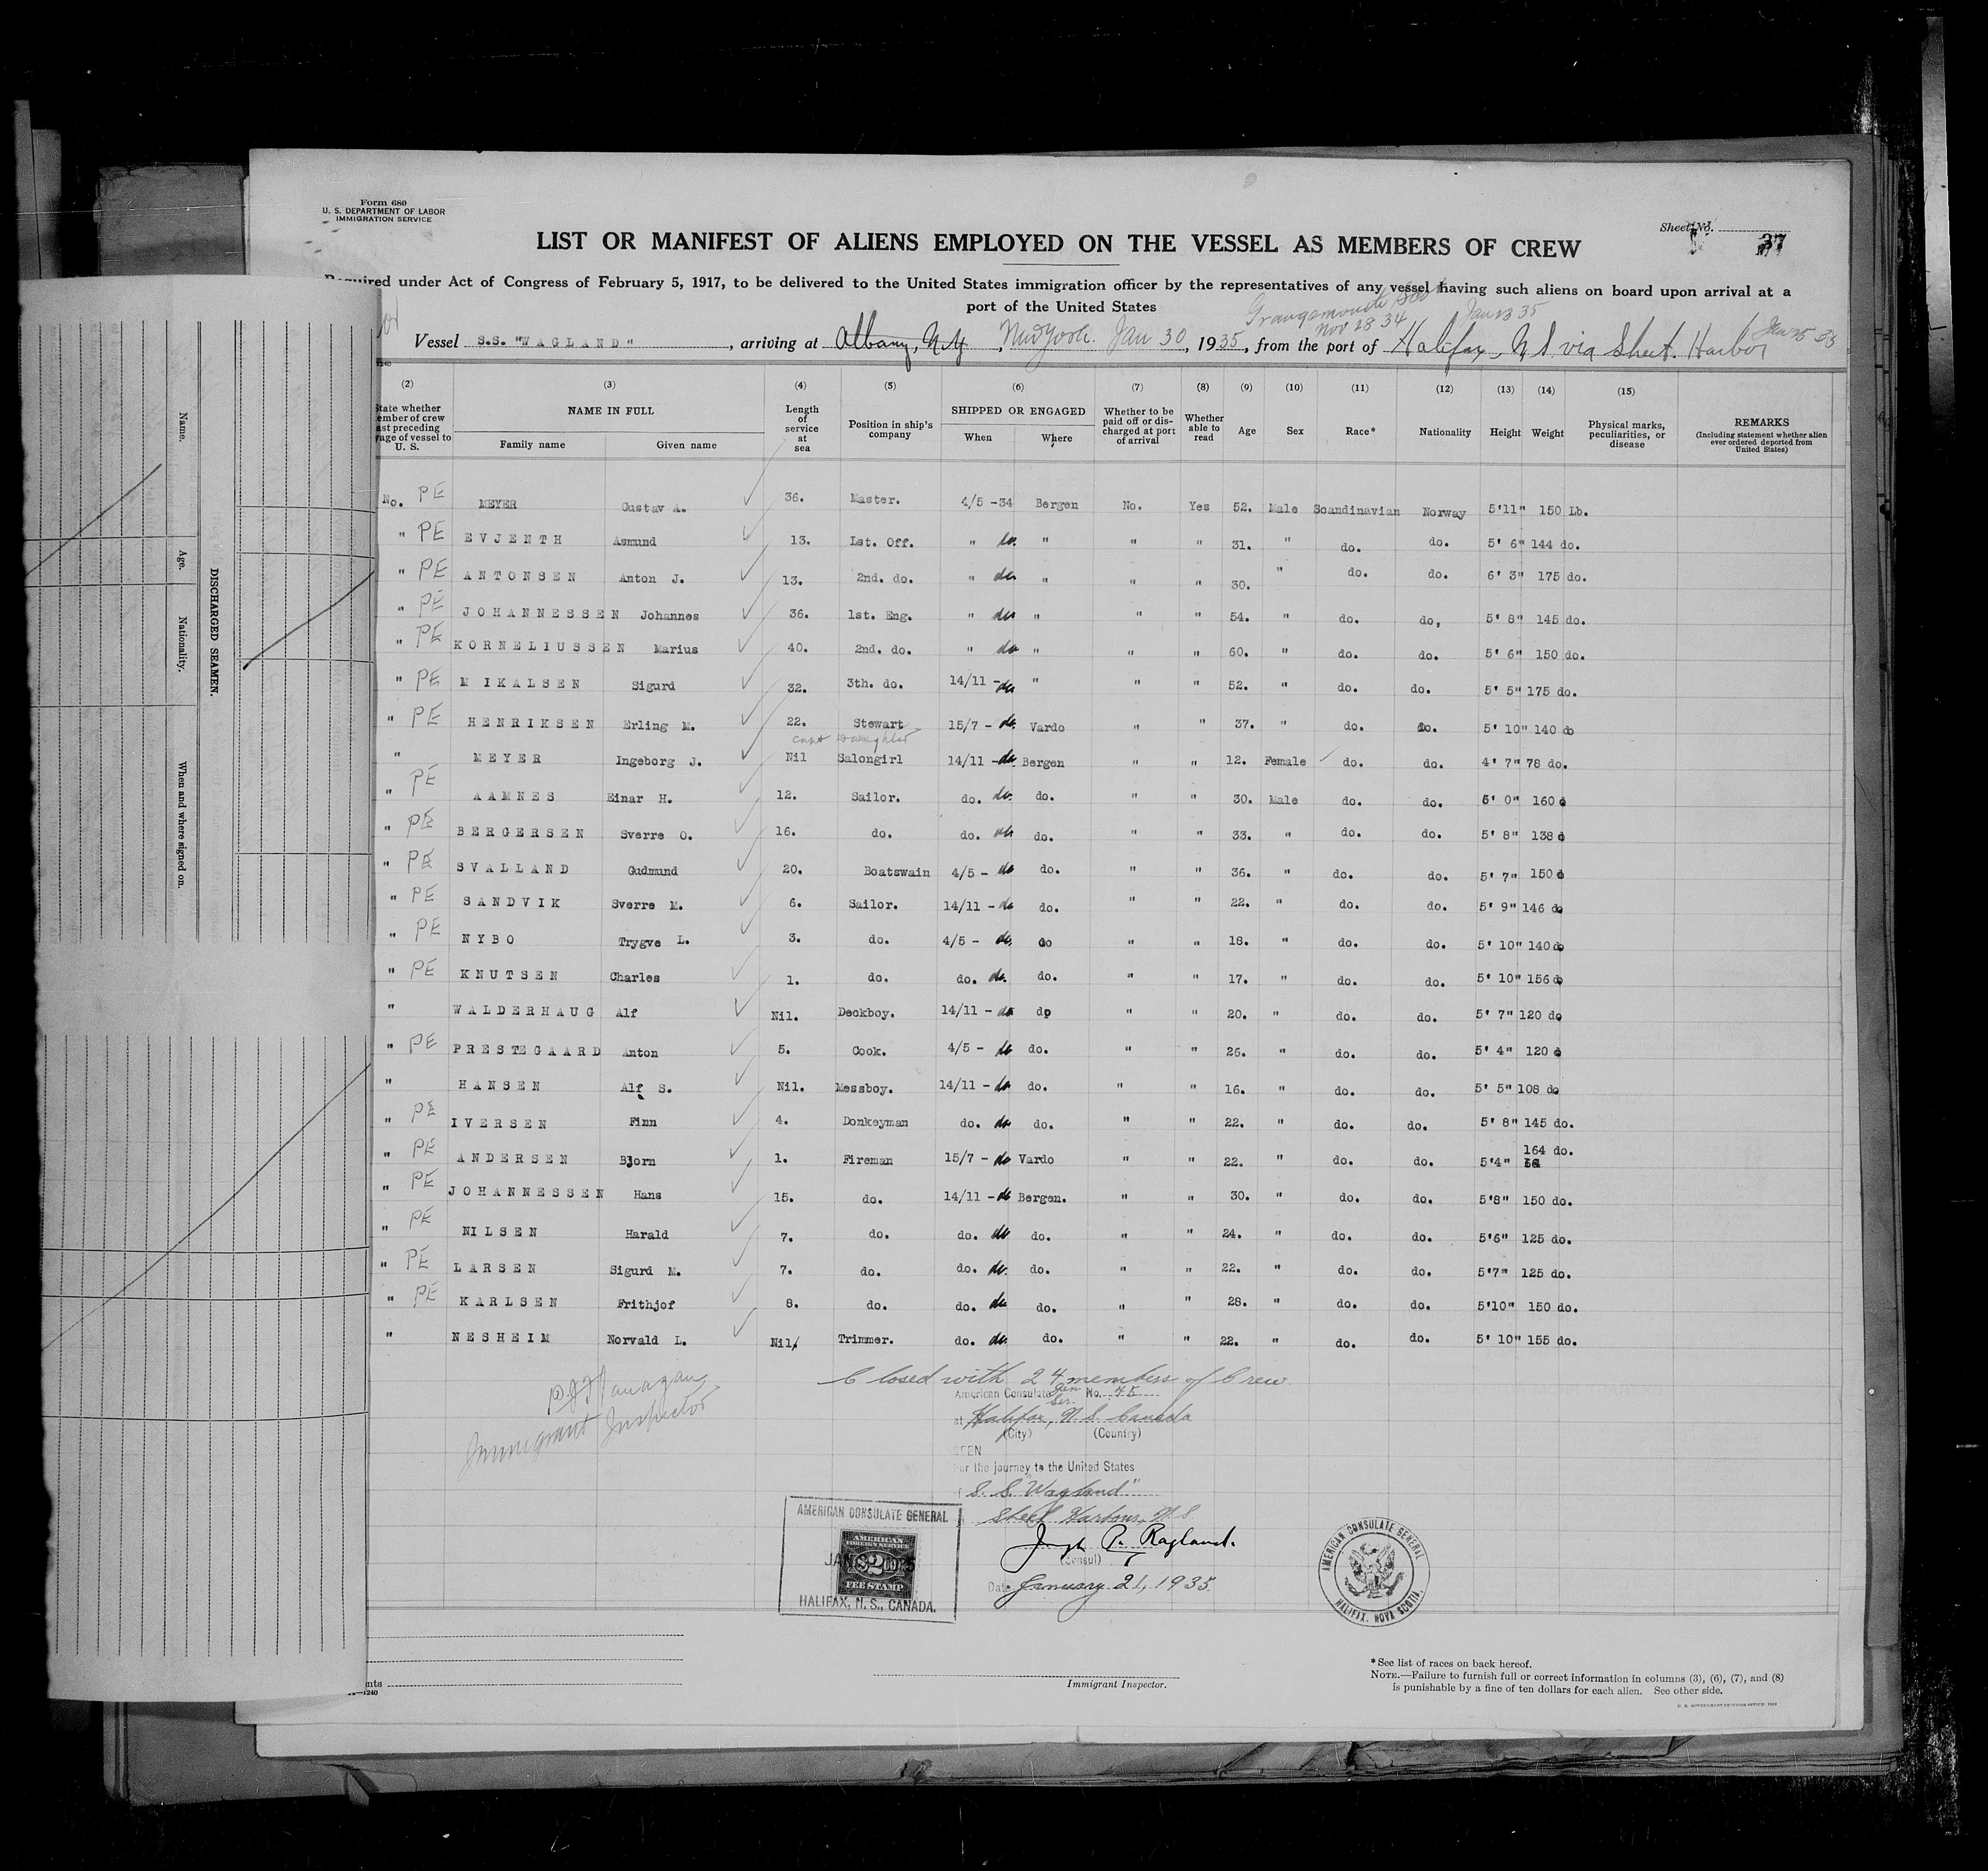 Form 680
U. S. DEPARTMENT OF LABOR
IMMIGRATION SERVICE
Sheet No.
37
LIST OR MANIFEST OF ALIENS EMPLOYED ON THE VESSEL AS MEMBERS OF CREW
Required under Act of Congress of February 5, 1917, to be delivered to the United States immigration officer by the representatives of any vessel having such aliens on board upon arrival at a
port of the United States
Grangemouth Scot
Nov 28 34
Jan 23 35
Vessel S.S. "WAGLAND", arriving at Albany, N.Y, New York. Jan 30, 1935, from the port of Halifax, N S via Sheet. Harbor Jan 25 35
(2) (3) (4) (5) (6) (7) (8) (9) (10) (11) (12) (13) (14) (15)
State whether member of crew last preceding voyage of vessel to U. S. NAME IN FULL Family name Given name Length of service at sea Position in ship's company SHIPPED OR ENGAGED When Where Whether to be paid off or discharged at port of arrival Whether able to read Age Sex Race* Nationality Height Weight Physical marks, peculiarities, or disease REMARKS (Including statement whether alien ever ordered deported from United States)
No. PE MEYER Gustav A. 36. Master. 4/5 -34 Bergen No. Yes 52. Male Scandinavian Norway 5'11" 150 Lb.
" PE EVJENTH Asmund 13. 1st. Off. " do. " " " 31. " do. do. 5' 6" 144 do.
" PE ANTONSEN Anton J. 13. 2nd. do. " do " " " 30. " do. do. 6' 3" 175 do.
" PE JOHANNESSEN Johannes 36. 1st. Eng. " do " " " 54. " do. do, 5' 8" 145 do.
" PE KORNELIUSSEN Marius 40. 2nd. do. " do " " " 60. " do. do. 5' 6" 150 do.
" PE MIKALSEN Sigurd 32. 3th. do. 14/11 - do " " " 52. " do. do. 5' 5" 175 do.
" PE HENRIKSEN Erling M. 22. Stewart 15/7 - do. Vardo " " 37. " do. do. 5' 10" 140 do
Capt Daughter
" MEYER Ingeborg J. Nil Salongirl 14/11 - do. Bergen " " 12. Female do. do. 4' 7" 78 do.
" PE AAMNES Einar H. 12. Sailor. do. do. do. " " 30. Male do. do. 6' 0" 160 d
" PE BERGERSEN Sverre O. 16. do. do. do do. " " 33. " do. do. 5' 8" 138 d
" PE SVALLAND Gudmund 20. Boatswain 4/5 - do do. " " 36. " do. do. 5' 7" 150 d
" PE SANDVIK Sverre M. 6. Sailor. 14/11 - do do. " " 22. " do. do. 5' 9" 146 do
" PE NYBO Trygve L. 3. do. 4/5 - do. do " " 18. " do. do. 5' 10" 140 do
" PE KNUTSEN Charles 1. do. do. do. do. " " 17. " do. do. 5' 10" 156 do
" WALDERHAUG Alf Nil. Deckboy. 14/11 - do do " " 20. " do. do. 5' 7" 120 do
" PE PRESTEGAARD Anton 5. Cook. 4/5 - do do. " " 26. " do. do. 5' 4" 120 d
" HANSEN Alf S. Nil. Messboy. 14/11 - do do. " " 16. " do. do. 5' 5" 108 do
" PE IVERSEN Finn 4. Donkeyman do. do do. " " 22. " do. do. 5' 8" 145 do.
" PE ANDERSEN Bjorn 1. Fireman 15/7 - do Vardo " " 22. " do. do. 5'4" 164 do.
" PE JOHANNESSEN Hans 15. do. 14/11 - do Bergen. " " 30. " do. do. 5'8" 150 do.
" PE NILSEN Harald 7. do. do. do do. " " 24. " do. do. 5'6" 125 do.
" PE LARSEN Sigurd M. 7. do. do. do. do. " " 22. " do. do. 5'7" 125 do.
" PE KARLSEN Frithjof 8. do. do. do do. " " 28. " do. do. 5'10" 150 do.
" NESHEIM Norvald L. Nil. Trimmer. do. do. do. " " 22. " do. do. 5' 10" 155 do.
Closed with 24 members of Crew
Immigrant Inspector
American Consulate Gen No.
Ser.
at Halifax, N. S. Canada
(City) (Country)
SEEN
For the journey to the United States
S. S. "Wagland"
Sheet Harbour, N.S.
Joseph P. Ragland.
(Consul)
Date January 21, 1935.
AMERICAN CONSULATE GENERAL
AMERICAN
FOREIGN SERVICE
$2
FEE STAMP
HALIFAX, N. S., CANADA.
AMERICAN CONSULATE GENERAL
HALIFAX, NOVA SCOTIA.
Immigrant Inspector.
*See list of races on back hereof.
NOTE.—Failure to furnish full or correct information in columns (3), (6), (7), and (8)
is punishable by a fine of ten dollars for each alien. See other side.
U. S. GOVERNMENT PRINTING OFFICE
DISCHARGED SEAMEN.
Name.
Age.
Nationality.
When and where signed on.